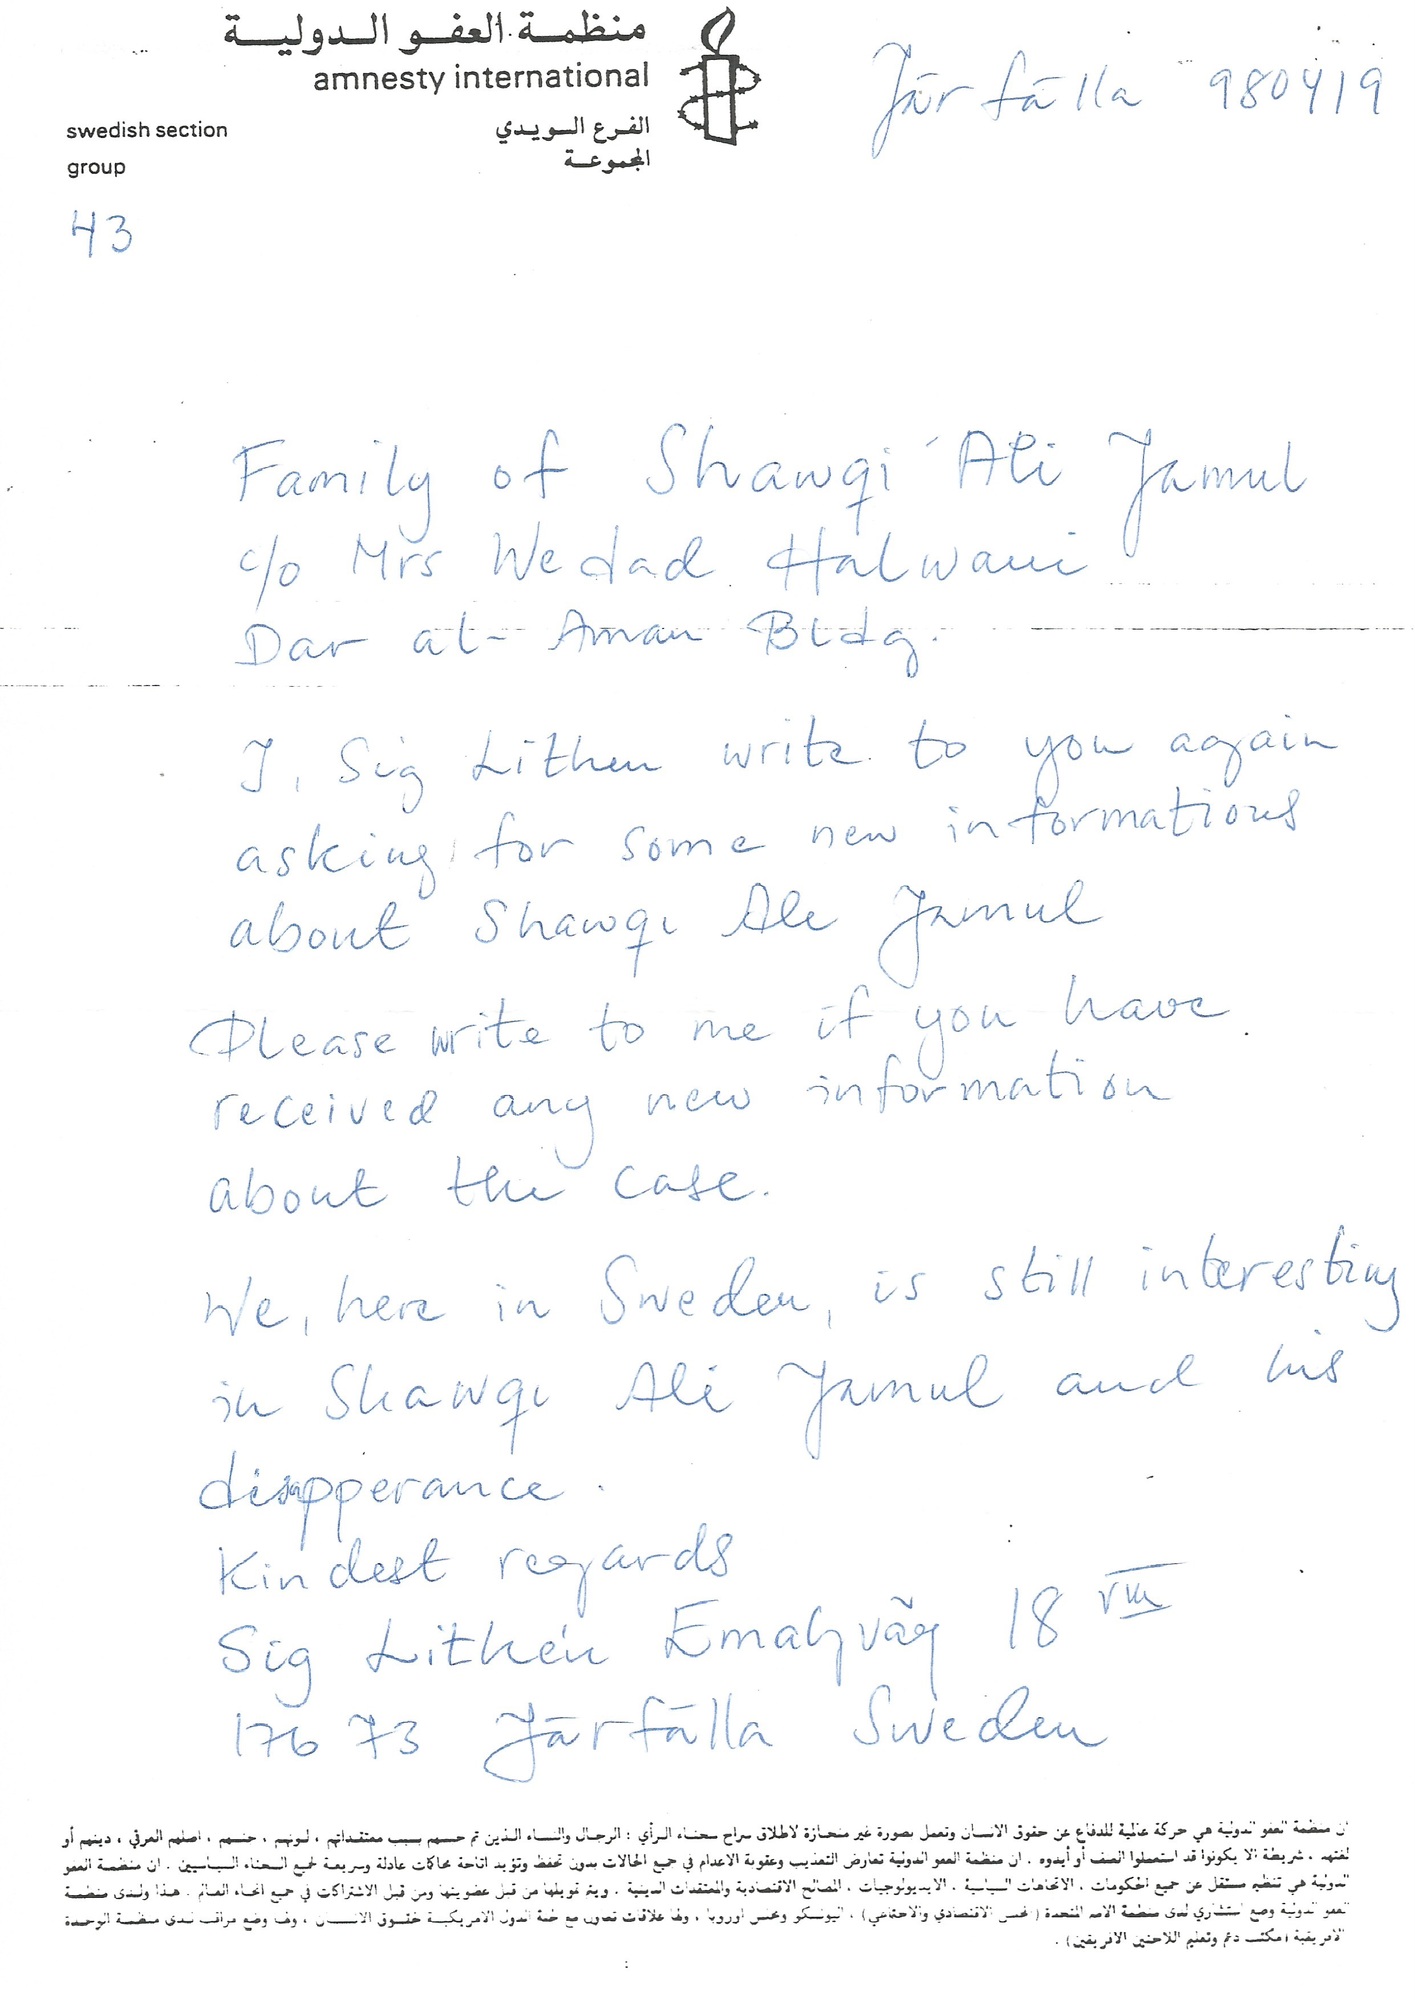 منظمة العفو الدولية
amnesty international
Järfälla 980419
swedish section
الفرع السويدي
group
المجموعة
43
Family of Shawqi 'Ali Jamul
c/o Mrs Wedad Halwani
Dar al-Aman Bldg.
I, Sig Lithen write to you again
asking for some new informations
about Shawqi Ali Jamul
Please write to me if you have
received any new information
about the case.
We, here in Sweden, is still interesting
in Shawqi Ali Jamul and his
disapperance.
Kindest regards
Sig Lithén 18 VIII
176 73 Järfälla Sweden
ان منظمة العفو الدولية هي حركة عالمية للدفاع عن حقوق الانسان وتعمل بصورة غير منحازة لاطلاق سراح سجناء الرأي : الرجال والنساء الذين تم حبسهم بسبب معتقداتهم ، لونهم ، جنسهم ، اصلهم العرقي ، دينهم أو
لغتهم ، شريطة الا يكونوا قد استعملوا العنف أو أيدوه . ان منظمة العفو الدولية تعارض التعذيب وعقوبة الاعدام في جميع الحالات بدون تحفظ وتؤيد اتاحة محاكمات عادلة وسريعة لجميع السجناء السياسيين . ان منظمة العفو
الدولية هي تنظيم مستقل عن جميع الحكومات ، الاتجاهات السياسية ، الايديولوجيات ، المصالح الاقتصادية والمعتقدات الدينية . ويتم تمويلها من قبل عضويتها ومن قبل الاشتراكات في جميع انحاء العالم . هذا ولدى منظمة
العفو الدولية وضع استشاري لدى منظمة الامم المتحدة (المجلس الاقتصادي والاجتماعي) ، اليونسكو ومجلس اوروبا ، ولها علاقات تعاون مع لجنة الدول الامريكية لحقوق الانسان ، ولها وضع مراقب لدى منظمة الوحدة
الافريقية (مكتب دعم وتعليم اللاجئين الافريقيين) .